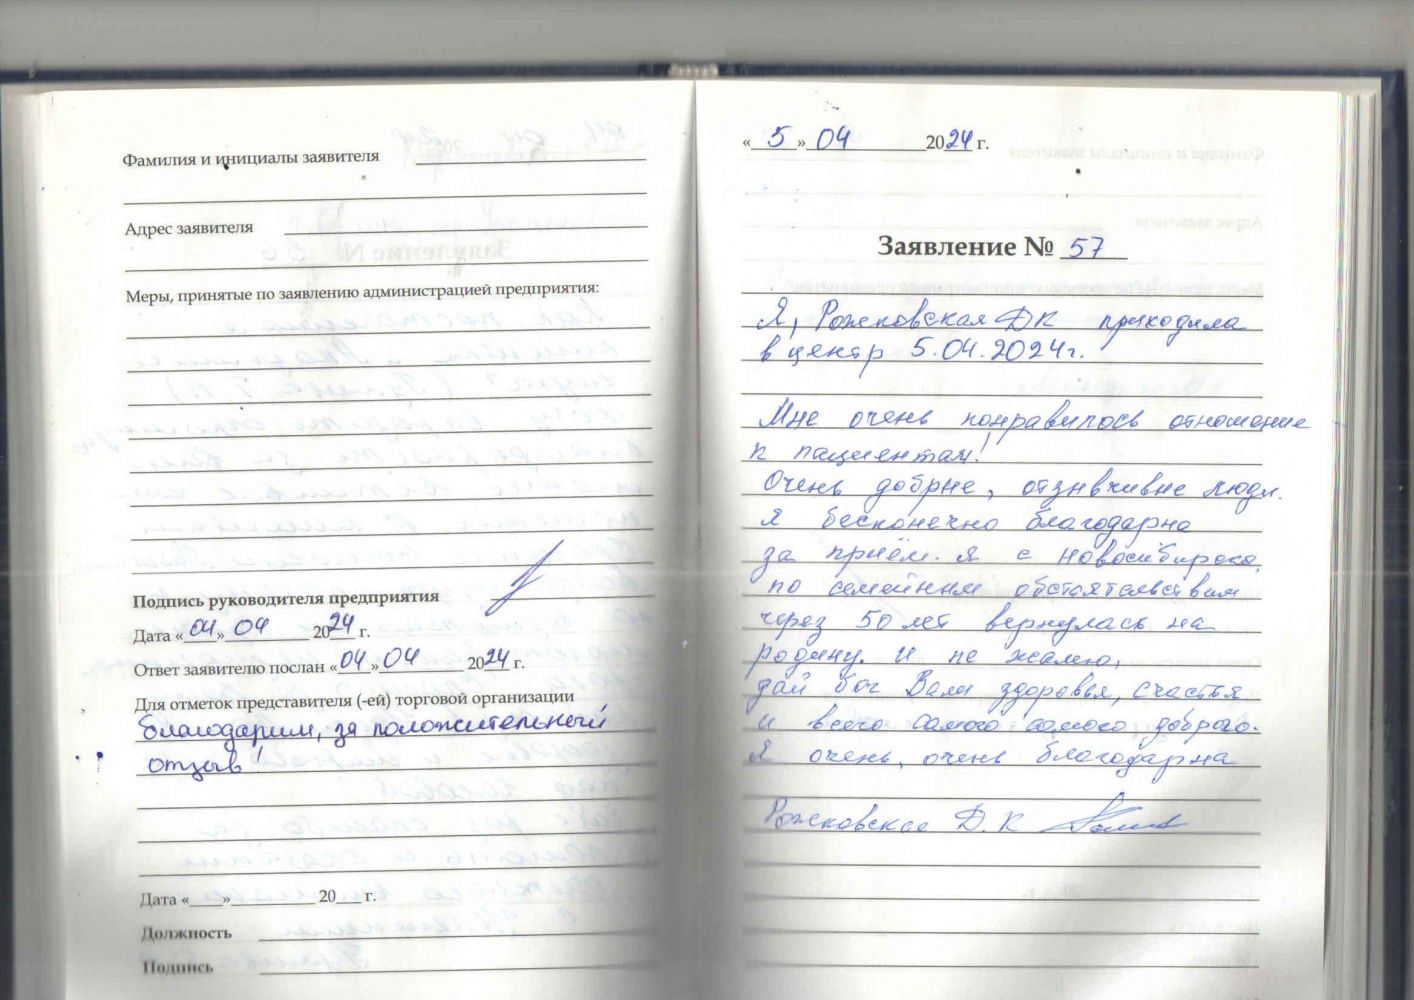 Фамилия и инициалы заявителя
Адрес заявителя
Меры, принятые по заявлению администрацией предприятия:
Подпись руководителя предприятия
Дата «04» 04 2024 г.
Ответ заявителю послан «04» 04 2024 г.
Для отметок представителя (-ей) торговой организации
благодарим, за положительный
отзыв!
Дата «____»__________ 20___ г.
Должность
Подпись
«5» 04 2024 г.
Заявление № 57
Я, Рожковская ДК приходила
в центр 5.04.2024г.
Мне очень понравилось отношение
к пациентам!
Очень добрые, отзывчивые люди.
Я бесконечно благодарна
за приём. Я с Новосибирска,
по семейным обстоятельствам
через 50 лет вернулась на
родину. И не жалею,
дай бог Вам здоровья, счастья
и всего самого самого доброго.
Я очень, очень благодарна
Рожковская Д.К